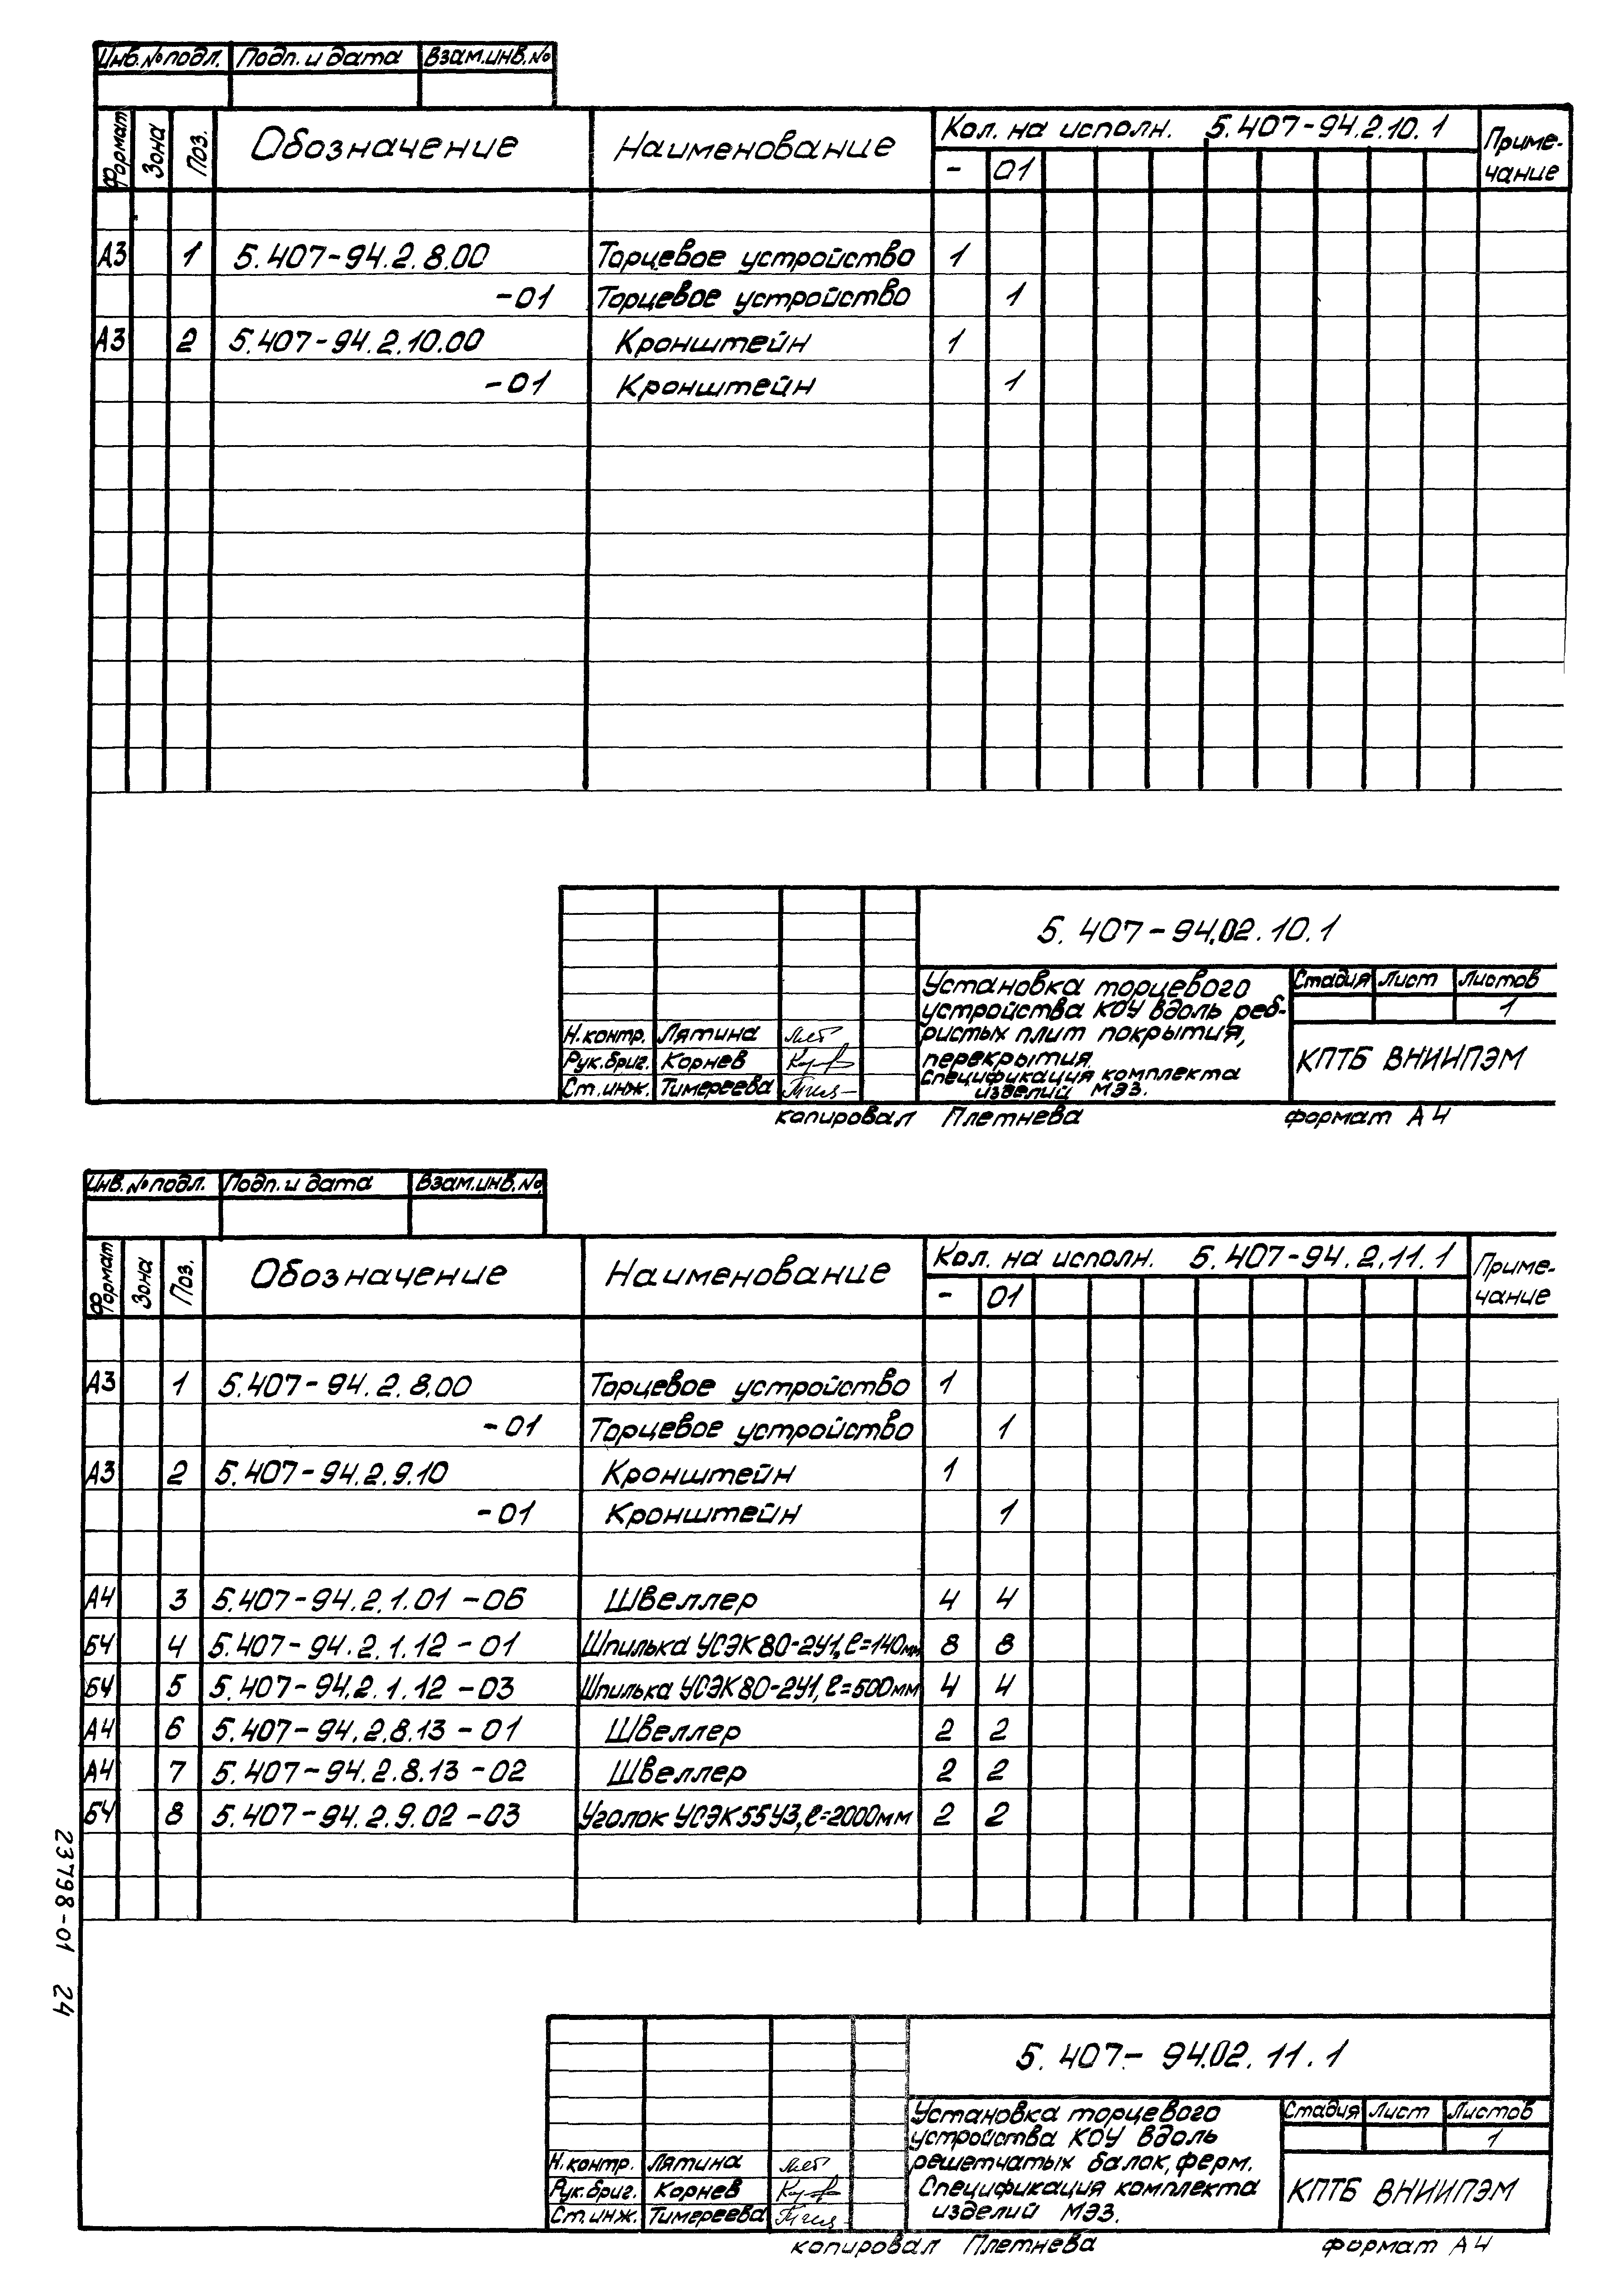 Инв.№подл. Подп. и дата Взам.инв.№
Формат Зона Поз. Обозначение Наименование Кол. на исполн. 5.407-94.2.10.1 Приме-
чание
- 01
А3 1 5.407-94.2.8.00 Торцевое устройство 1
-01 Торцевое устройство 1
А3 2 5.407-94.2.10.00 Кронштейн 1
-01 Кронштейн 1
5.407-94.02.10.1
Установка торцевого
устройства КОУ вдоль реб-
ристых плит покрытия,
перекрытия.
Спецификация комплекта
изделий МЭЗ.
Стадия Лист Листов
1
Н.контр. Лятина
Рук.бриг. Корнев
Ст.инж. Тимереева
КПТБ ВНИИПЭМ
копировал Плетнева формат А4
Инв.№подл. Подп. и дата Взам.инв.№
Формат Зона Поз. Обозначение Наименование Кол. на исполн. 5.407-94.2.11.1 Приме-
чание
- 01
А3 1 5.407-94.2.8.00 Торцевое устройство 1
-01 Торцевое устройство 1
А3 2 5.407-94.2.9.10 Кронштейн 1
-01 Кронштейн 1
А4 3 5.407-94.2.1.01-06 Швеллер 4 4
БЧ 4 5.407-94.2.1.12-01 Шпилька УСЭК80-2У1, ℓ=140мм 8 8
БЧ 5 5.407-94.2.1.12-03 Шпилька УСЭК80-2У1, ℓ=500мм 4 4
А4 6 5.407-94.2.8.13-01 Швеллер 2 2
А4 7 5.407-94.2.8.13-02 Швеллер 2 2
БЧ 8 5.407-94.2.9.02-03 Уголок УСЭК55У3, ℓ=2000мм 2 2
23798-01 24
5.407-94.02.11.1
Установка торцевого
устройства КОУ вдоль
решетчатых балок, ферм.
Спецификация комплекта
изделий МЭЗ.
Стадия Лист Листов
1
Н.контр. Лятина
Рук.бриг. Корнев
Ст.инж. Тимереева
КПТБ ВНИИПЭМ
копировал Плетнева формат А4